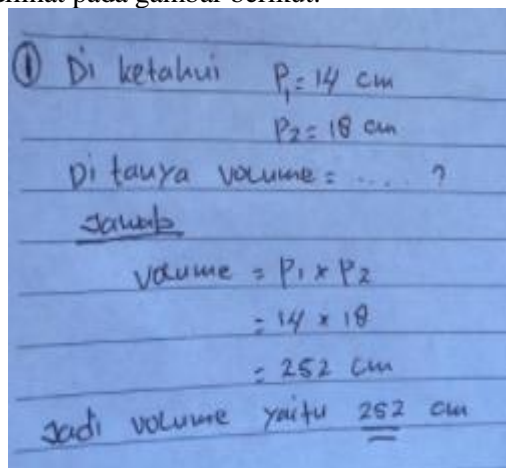 ① Di ketahui P1 = 14 cm
P2 = 18 cm
Di tanya volume = .... ?
Jawab
Volume = P1 x P2
= 14 x 18
= 252 cm
Jadi volume yaitu 252 cm